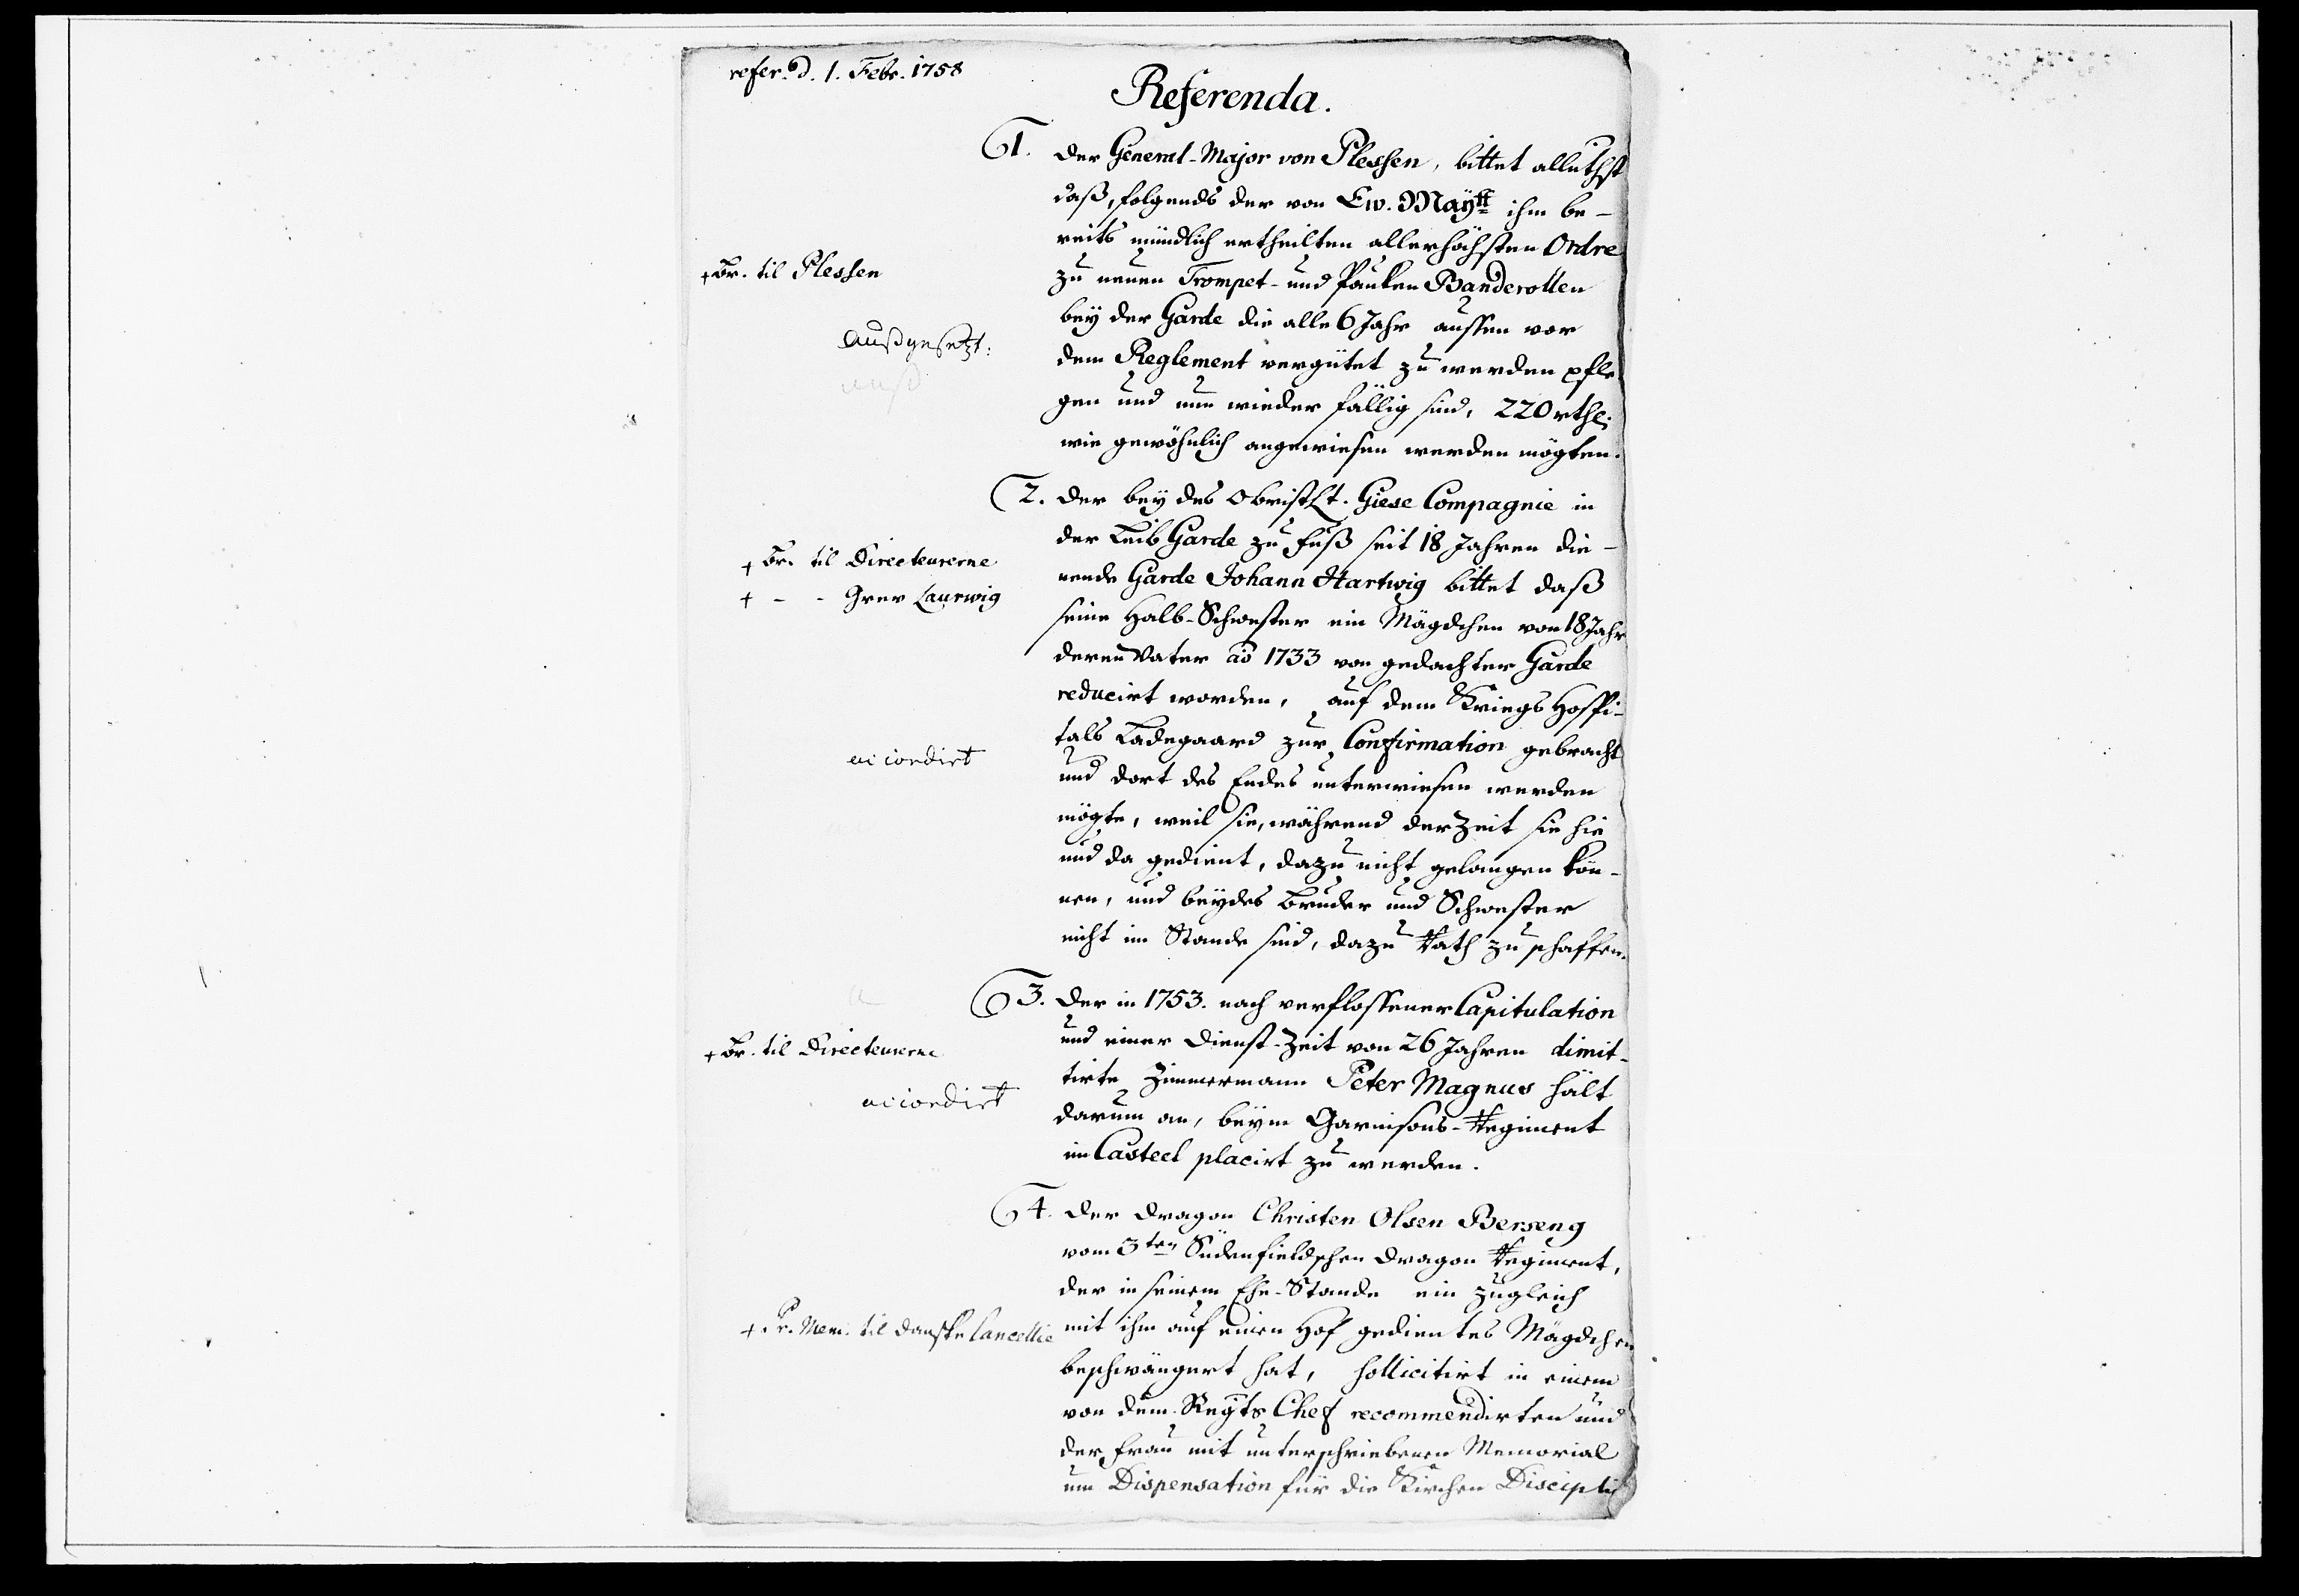 refer. d. 1. Febr. 1758
Referenda.
1. der General-Major von Plessen, bittet alluthst
daß, folgends der von Ew. Maytt ihm be-
reits mündlich ertheilten allerhöchsten Ordre
+ Br. til Plessen
zu neuen Trompet- und Pauken Banderollen
bey der Garde die alle 6 Jahr aussen vor
außgesetzt:
dem Reglement vergütet zu werden pfle
auß
gen und nun wieder fällig sind, 220 rthl.
wie gewöhnlich angewiesen werden mögten.
2. der bey des Obristlt. Giese Compagnie in
der Leib Garde zu Fuß seit 18 Jahren die-
+ Br. til Directeurerne
nende Garde Johann Hartwig bittet daß
+ - - Grev Laurwig
seine Halb-Schwester ein Mägdchen von 18 Jahr
deren Vater ao 1733 von gedachter Garde
reducirt worden, auf dem Kriegs Hospi-
tals Ladegaard zur Confirmation gebracht
accordirt
und dort des Endes unterwiesen werden
mögte, weil sie, während der Zeit sie hie
und da gedient, dazu nicht gelangen kön-
nen, und beydes Bruder und Schwester
nicht im Stande sind, dazu Rath zu schaffen.
3. der in 1753. nach verflossener Capitulation
und einer Dienst-Zeit von 26 Jahren dimit-
+ Br. til Directeurerne
tirte Zimmermann Peter Magnus hält
accordirt
darum an, beym Garnisons-Regiment
im Casteel placirt zu werden.
4. der Dragon Christen Olsen Berseng
vom 3ten Südenfieldschen Dragon Regiment,
der in seinem Ehe-Stande ein zugleich
+ Pr. Mem. til danske Cancellie
mit ihm auf einen Hof gedientes Mägdchen
beschwängert hat, sollicitirt in einem
von dem Regts Chef recommendirten und
der Frau mit unterschriebenen Memorial
um Dispensation für die Kirchen Disciplin